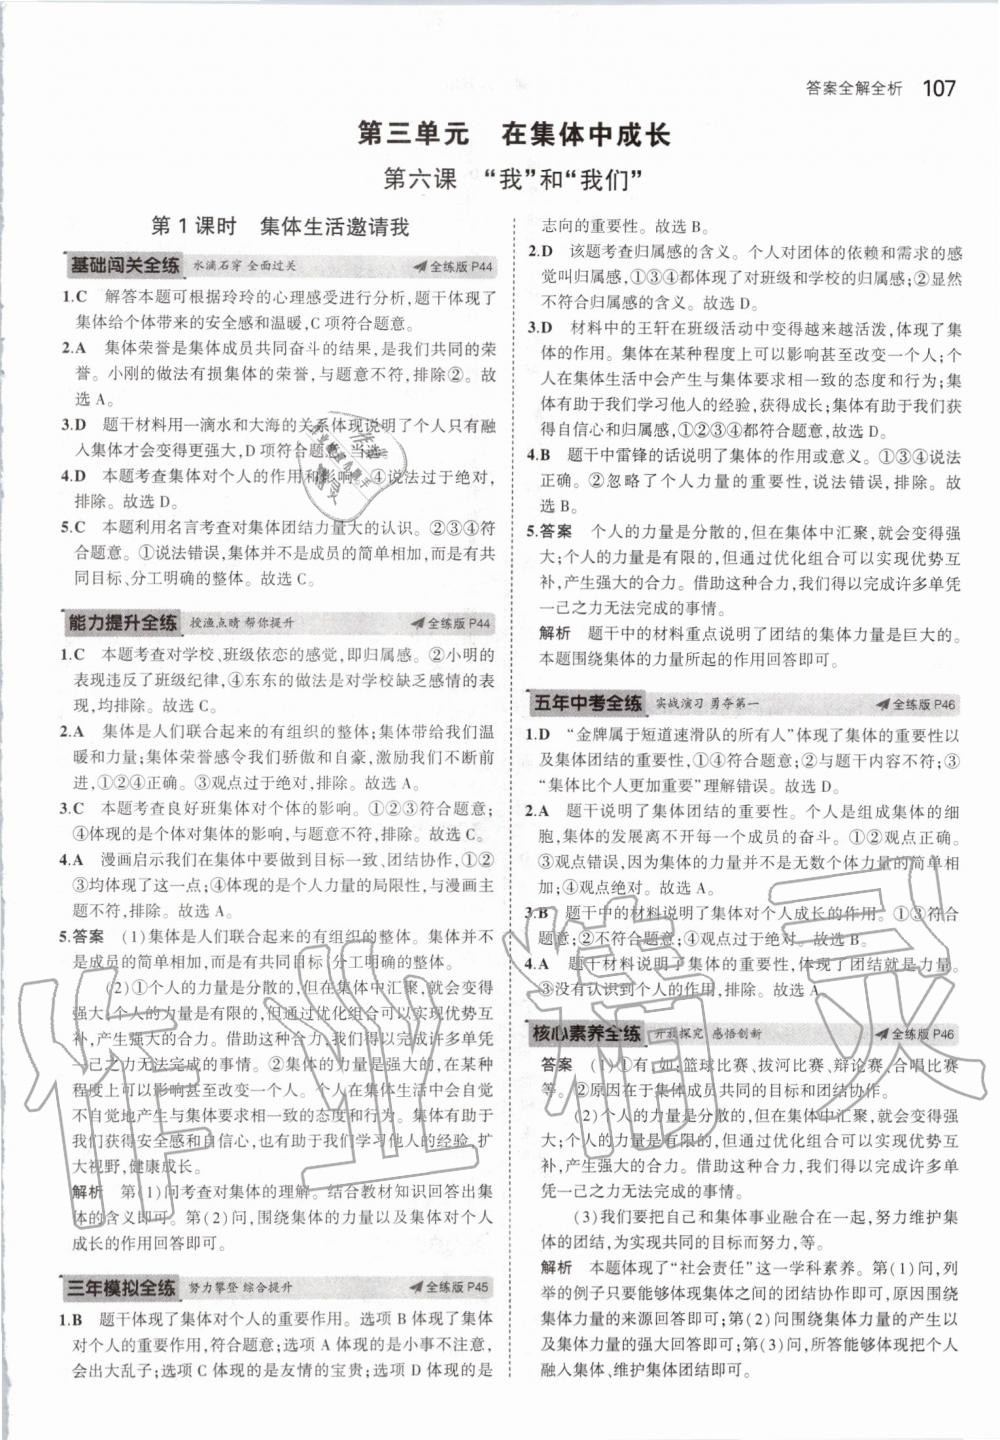 答案全解全析 107
第三单元 在集体中成长
第六课 “我”和“我们”
第1课时 集体生活邀请我
基础闯关全练 水滴石穿 全面过关 全练版P44
1.C 解答本题可根据玲玲的心理感受进行分析,题干体现了
集体给个体带来的安全感和温暖,C项符合题意。
2.A 集体荣誉是集体成员共同奋斗的结果,是我们共同的荣
誉。小刚的做法有损集体的荣誉,与题意不符,排除②。故
选A。
3.D 题干材料用一滴水和大海的关系体现说明了个人只有融
入集体才会变得更强大,D项符合题意,当选。
4.D 本题考查集体对个人的作用和影响。④说法过于绝对,
排除。故选D。
5.C 本题利用名言考查对集体团结力量大的认识。②③④符
合题意。①说法错误,集体并不是成员的简单相加,而是有共
同目标、分工明确的整体。故选C。
能力提升全练 授渔点睛 帮你提升 全练版P44
1.C 本题考查对学校、班级依恋的感觉,即归属感。②小明的
表现违反了班级纪律,④东东的做法是对学校缺乏感情的表
现,均排除。故选C。
2.A 集体是人们联合起来的有组织的整体;集体带给我们温
暖和力量;集体荣誉感令我们骄傲和自豪,激励我们不断前
进,①②④正确。③观点过于绝对,排除。故选A。
3.C 本题考查良好班集体对个体的影响。①②③符合题意;
④体现的是个体对集体的影响,与题干不符,排除。故选C。
4.A 漫画启示我们在集体中要做到目标一致、团结协作,①②
③均体现了这一点;④体现的是个人力量的局限性,与漫画主
题不符,排除。故选A。
5.答案 (1)集体是人们联合起来的有组织的整体。集体并不
是成员的简单相加,而是有共同目标、分工明确的整体。
(2)①个人的力量是分散的,但在集体中汇聚,就会变得
强大;个人的力量是有限的,但通过优化组合可以实现优势互
补,产生强大的合力。借助这种合力,我们得以完成许多单凭
一己之力无法完成的事情。②集体的力量是强大的,在某种
程度上可以影响甚至改变一个人。个人在集体生活中会自觉
不自觉地产生与集体要求相一致的态度和行为。集体有助于
我们获得安全感和自信心,也有助于我们学习他人的经验,扩
大视野,健康成长。
解析 第(1)问考查对集体的理解。结合教材知识回答出集
体的含义即可。第(2)问,围绕集体的力量以及集体对个人
成长的作用回答即可。
三年模拟全练 努力攀登 综合提升 全练版P45
1.B 题干体现了集体对个人的重要作用。选项B体现了集体
对个人的重要作用,符合题意;选项A体现的是小事不注意,
会出大乱子;选项C体现的是友情的宝贵;选项D体现的是
志向的重要性。故选B。
2.D 该题考查归属感的含义。个人对团体的依赖和需求的感
觉叫归属感,①③④都体现了对班级和学校的归属感;②显然
不符合归属感的含义。故选D。
3.D 材料中的王轩在班级活动中变得越来越活泼,体现了集
体的作用。集体在某种程度上可以影响甚至改变一个人;个
人在集体生活中会产生与集体要求相一致的态度和行为;集
体有助于我们学习他人的经验,获得成长;集体有助于我们获
得自信心和归属感,①②③④都符合题意,故选D。
4.B 题干中雷锋的话说明了集体的作用或意义。①③④说法
正确。②忽略了个人力量的重要性,说法错误,排除。故
选B。
5.答案 个人的力量是分散的,但在集体中汇聚,就会变得强
大;个人的力量是有限的,但通过优化组合可以实现优势互
补,产生强大的合力。借助这种合力,我们得以完成许多单凭
一己之力无法完成的事情。
解析 题干中的材料重点说明了团结的集体力量是巨大的。
本题围绕集体的力量所起的作用回答即可。
五年中考全练 实战演习 勇夺第一 全练版P46
1.D “金牌属于短道速滑队的所有人”体现了集体的重要性以
及集体团结的重要性,①④符合题意;②与题干内容不符;③
“集体比个人更加重要”理解错误。故选D。
2.A 题干说明了集体团结的重要性。个人是组成集体的细
胞,集体的发展离不开每一个成员的奋斗。①②观点正确。
③观点错误,因为集体的力量并不是无数个体力量的简单相
加;④观点绝对。故选A。
3.B 题干中的材料说明了集体对个人成长的作用。①③符合
题意;②不符合题意;④观点过于绝对,排除。故选B。
4.A 题干材料说明了集体的重要性,体现了团结就是力量。
③没有认识到个人的作用,排除。故选A。
核心素养全练 开放探究 感悟创新 全练版P46
答案 (1)①有。如:篮球比赛、拔河比赛、辩论赛、合唱比赛
等。②原因在于集体成员共同的目标和团结协作。
(2)个人的力量是分散的,但在集体中汇聚,就会变得强
大;个人的力量是有限的,但通过优化组合可以实现优势互
补,产生强大的合力。借助这种合力,我们得以完成许多单凭
一己之力无法完成的事情。
(3)我们要把自己和集体事业融合在一起,努力维护集
体的团结,为实现共同的目标而努力,等。
解析 本题体现了“社会责任”这一学科素养。第(1)问,列
举的例子只要能够体现集体之间的团结协作即可,原因围绕
集体力量的来源回答即可;第(2)问围绕集体力量的产生以
及集体力量的强大回答即可;第(3)问,所答能够体现把个人
融入集体、维护集体团结即可。
作业精灵